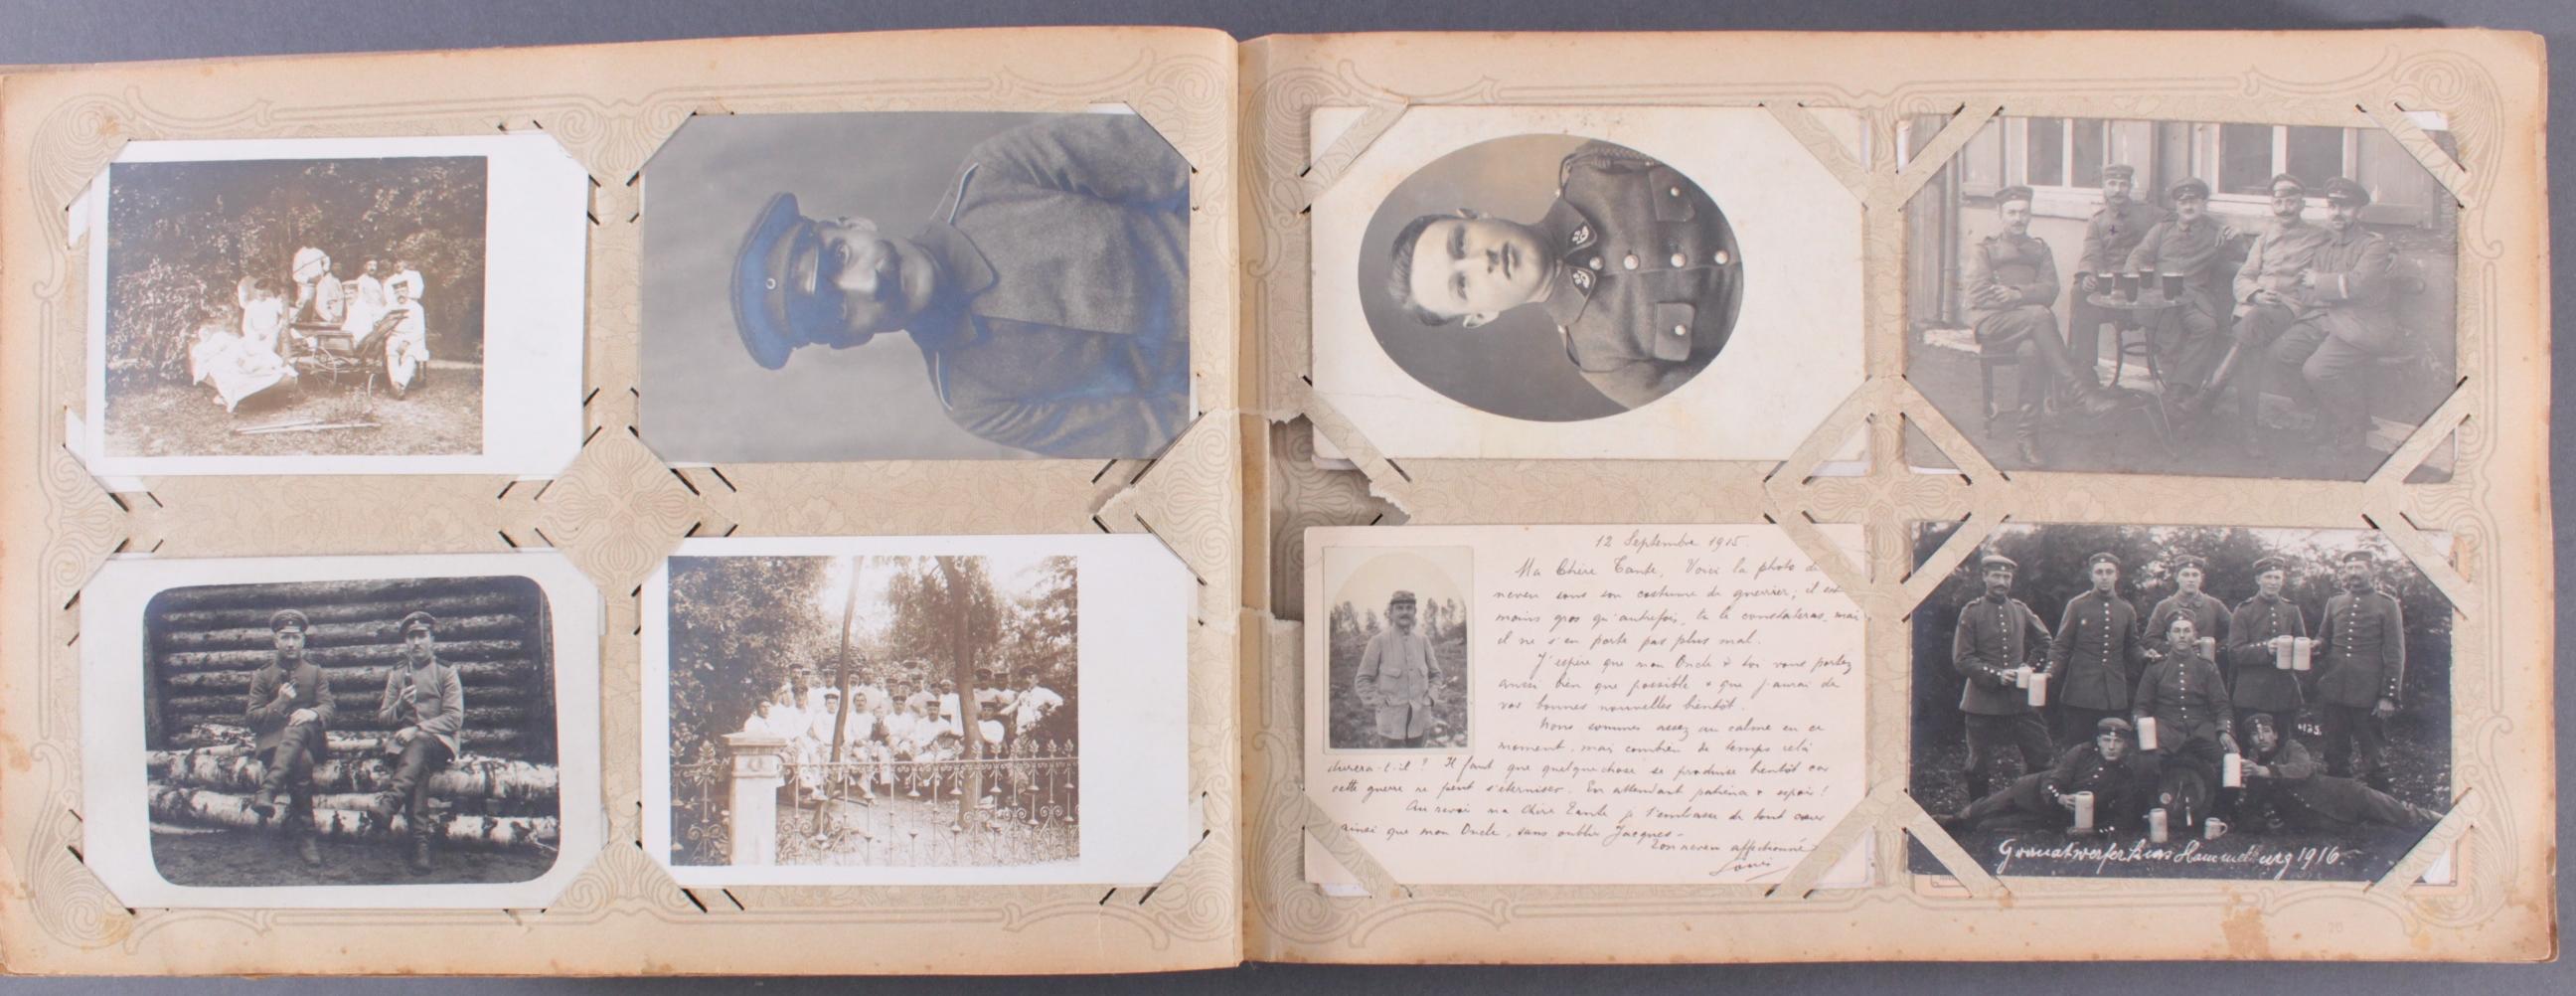 12 Septembre 1915
Ma Chère Tante, Voici la photo d
neveu sous son costume de guerrier; il est
moins gros qu'autrefois, tu le constateras, mais
il ne s'en porte pas plus mal.
J'espère que mon Oncle & toi vous portez
aussi bien que possible & que j'aurai de
vos bonnes nouvelles bientôt.
Nous sommes assez au calme en ce
moment, mais combien de temps cela
durera-t-il? Il faut que quelque chose se produise bientôt car
cette guerre ne peut s'éterniser. En attendant patience & espoir!
Au revoir ma chère Tante je t'embrasse de tout cœur
ainsi que mon Oncle, sans oublier Jacques -
Ton neveu affectionné
Louis
4175
Granatwerfer Kurs Hammelburg 1916.